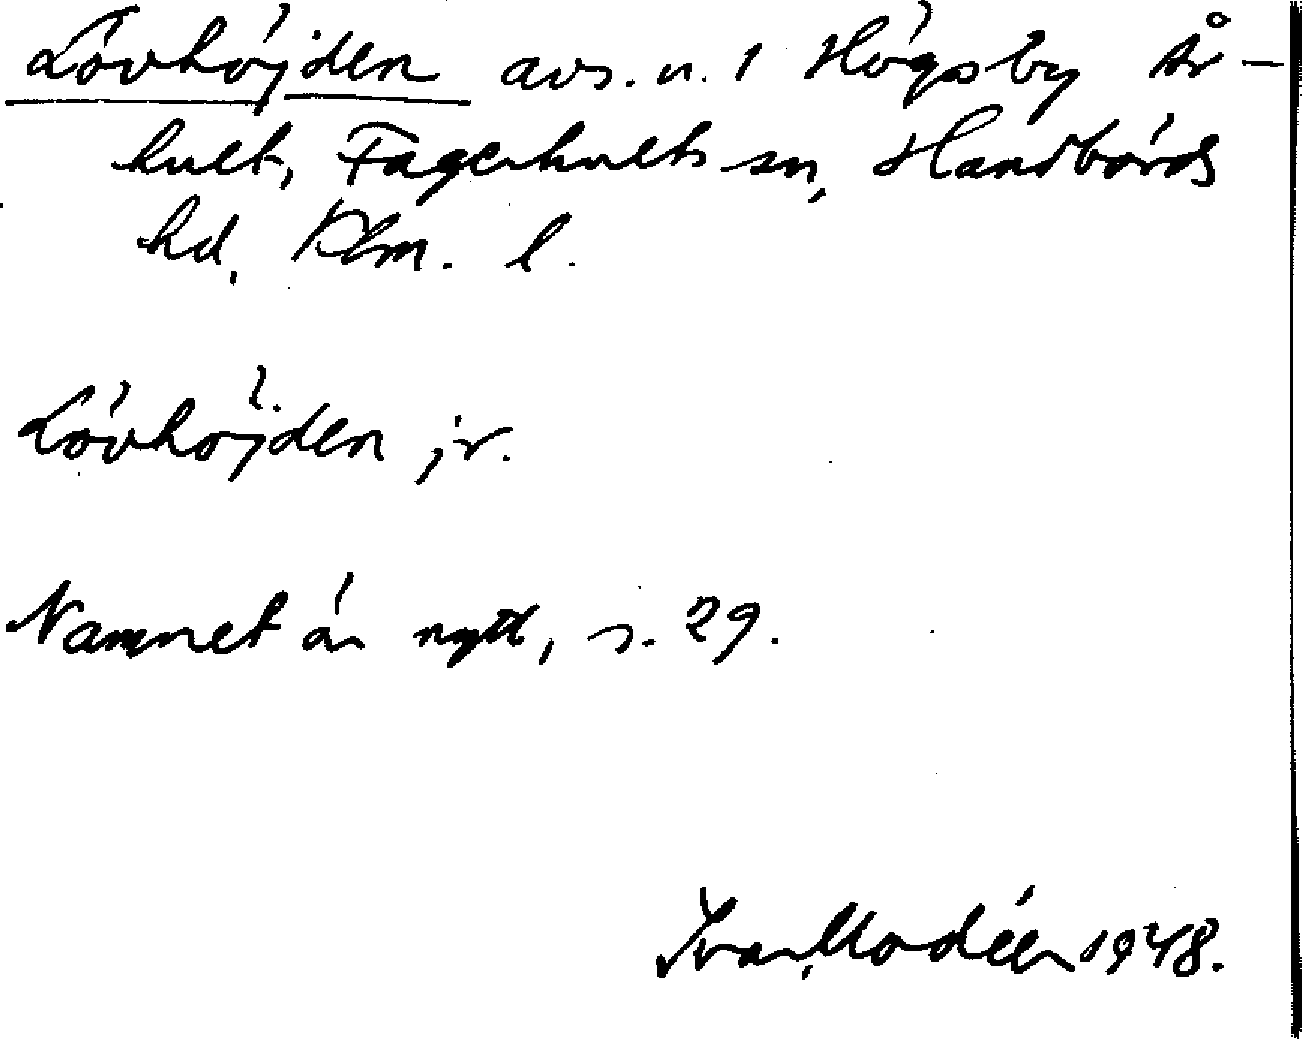 Lövhöjden avs. n. i Högsby År-
hult, Fagerhults sn, Handbörds
hd, Klm. l.
Lövhöjden jr.
Namnet är nytt, s. 29.
Ivar Modéer 1948.